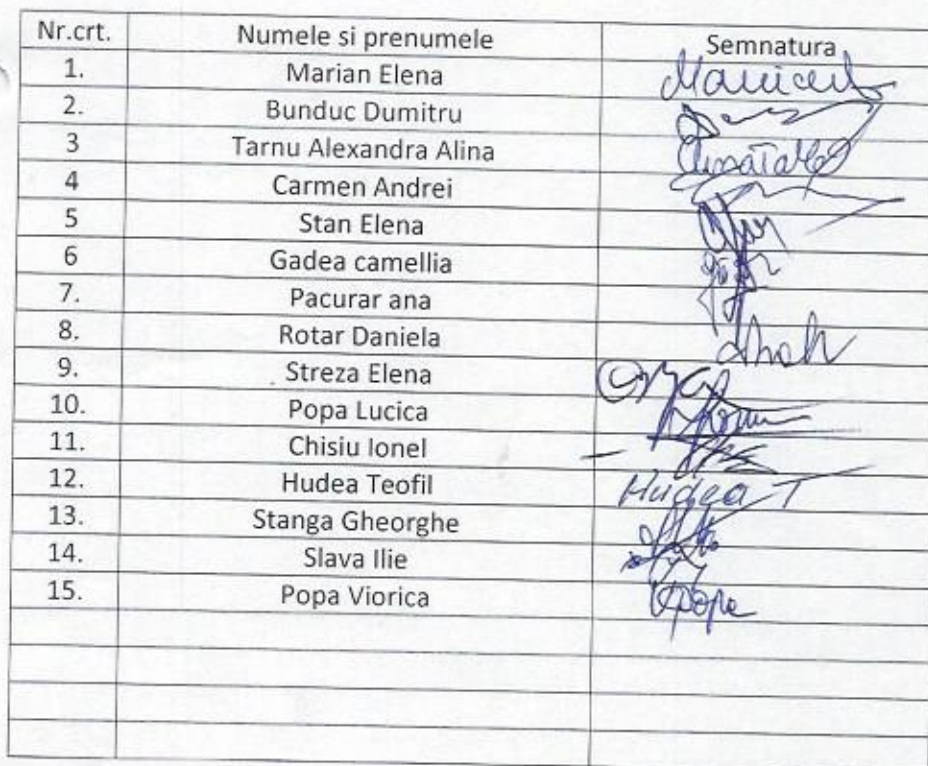 Nr.crt. Numele si prenumele Semnatura
1. Marian Elena
2. Bunduc Dumitru
3 Tarnu Alexandra Alina
4 Carmen Andrei
5 Stan Elena
6 Gadea camellia
7. Pacurar ana
8. Rotar Daniela
9. Streza Elena
10. Popa Lucica
11. Chisiu Ionel
12. Hudea Teofil Hudea T
13. Stanga Gheorghe
14. Slava Ilie
15. Popa Viorica VPopa